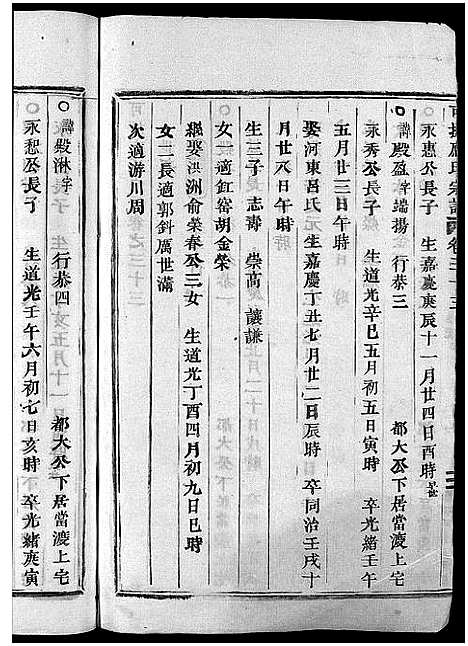 永惠公長子　生嘉慶庚辰十一月廿四日酉時早世
諱殿盈字端揚　行恭三　都大公下居當渡上宅
永秀公長子　生道光辛巳五月初五日寅時　卒光緒壬午
五月廿三日午時
娶河東呂氏元　生嘉慶丁丑七月廿二日辰時　卒同治壬戌十
月廿八日午時
生三子　志壽　崇高　讓謙
女一適釭窑胡金榮
繼娶洪洲俞榮春公三女　生道光丁酉四月初九日巳時
女二長適郭針厲世滿
次適游川周
諱殿淋字　行恭四　都大公下居當渡上宅
永恕公長子　生道光壬午六月初七日亥時　卒光緒庚寅